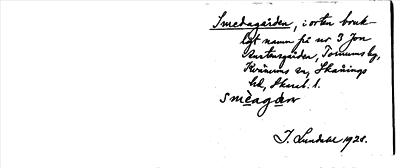 Smedagården, i orten bruk-
ligt namn på nr 3 Jon
Torstensgården, Tomums by,
Kvänums sn, Skånings
hd, Skarab. l.
smèagḍen
I. Lundahl 1928.